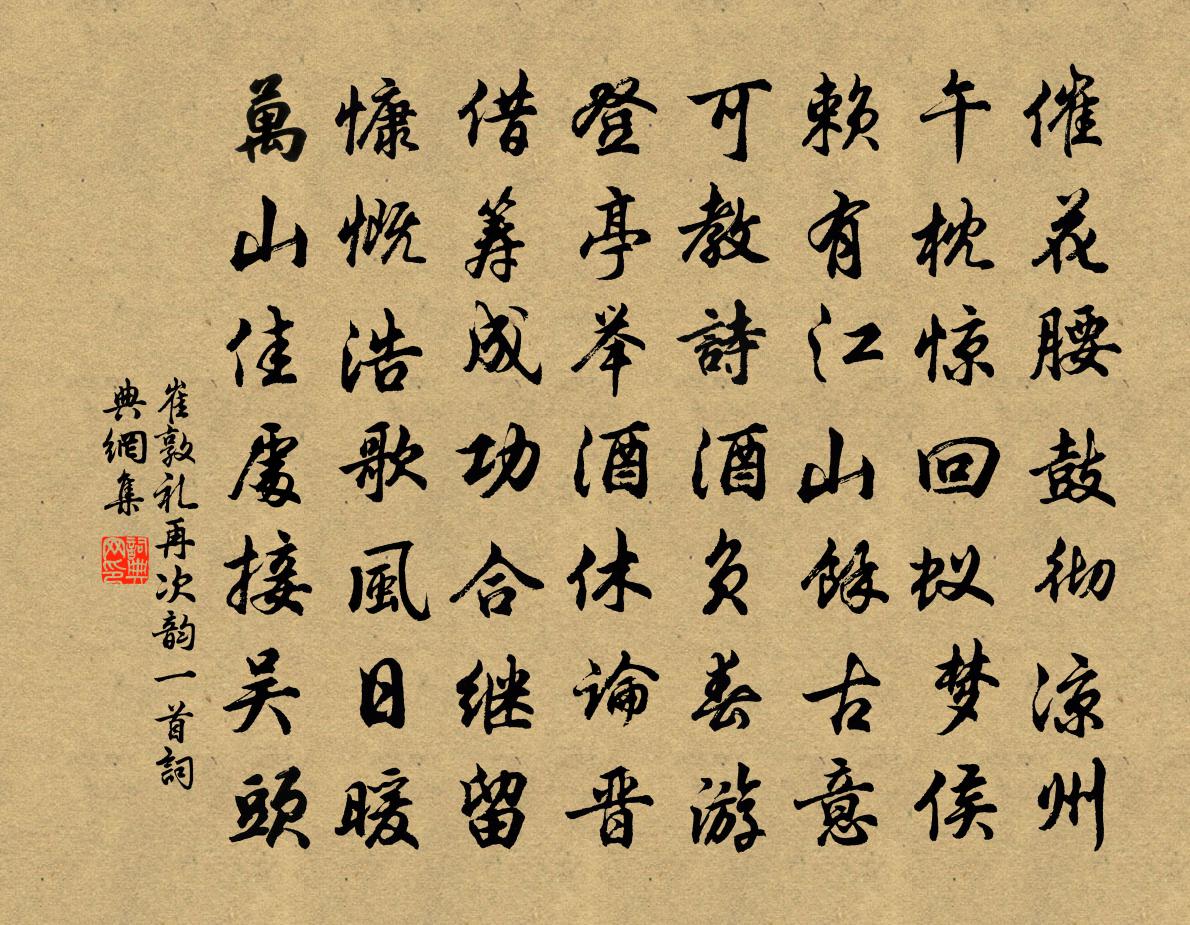 催花腰鼓彻凉州
午枕惊回蚁梦侯
赖有江山餘古意
可教詩酒负春游
登亭举酒休論晋
借筹成功合继留
慷慨浩歌風日暖
萬山佳處接吴頭
崔敦礼再次韵一首詞
典網集
詞典
网印